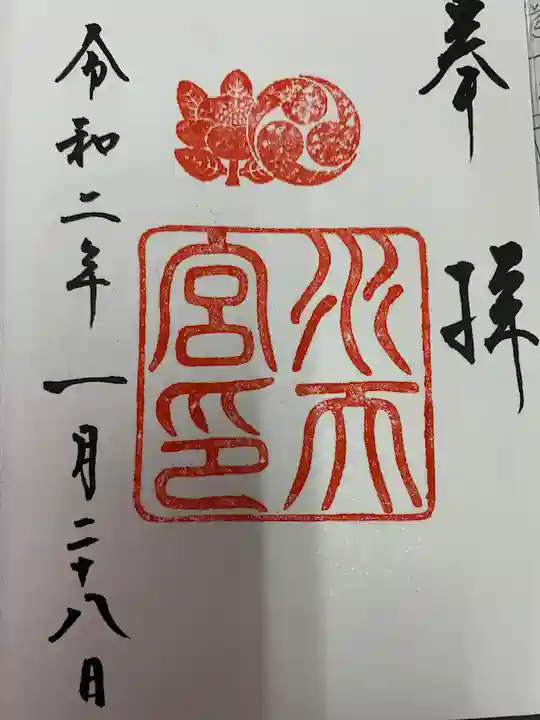 奉拝
水天宮印
令和二年一月二十八日